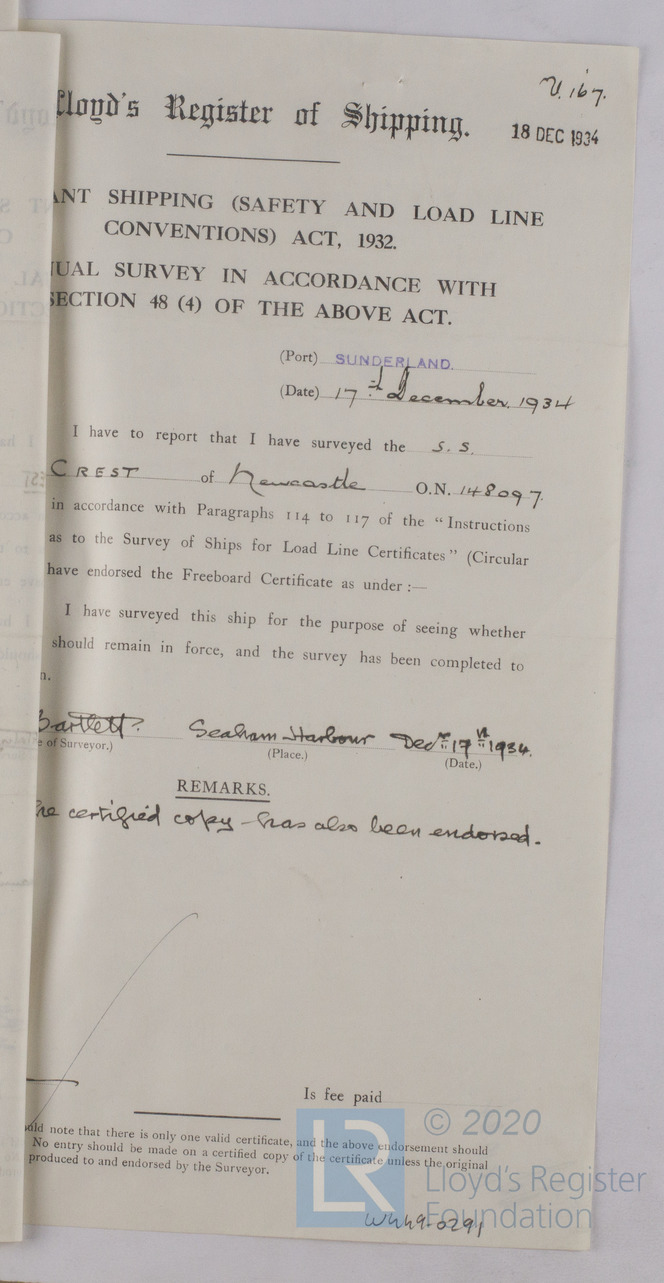 V. 167.
Lloyd's Register of Shipping.
18 DEC 1934
ANT SHIPPING (SAFETY AND LOAD LINE
CONVENTIONS) ACT, 1932.
UAL SURVEY IN ACCORDANCE WITH
SECTION 48 (4) OF THE ABOVE ACT.
(Port) SUNDERLAND.
(Date) 17th December, 1934
I have to report that I have surveyed the S.S.
CREST of Newcastle O.N. 148097.
in accordance with Paragraphs 114 to 117 of the "Instructions
as to the Survey of Ships for Load Line Certificates" (Circular
have endorsed the Freeboard Certificate as under :—
I have surveyed this ship for the purpose of seeing whether
should remain in force, and the survey has been completed to
n.
Bartlett. Seaham Harbour Decr 17th 1934.
e of Surveyor.) (Place.) (Date.)
REMARKS.
he certified copy has also been endorsed.
Is fee paid
uld note that there is only one valid certificate, and the above endorsement should
No entry should be made on a certified copy of the certificate unless the original
produced to and endorsed by the Surveyor.
© 2020
LR
Lloyd's Register
Foundation
W449-0291